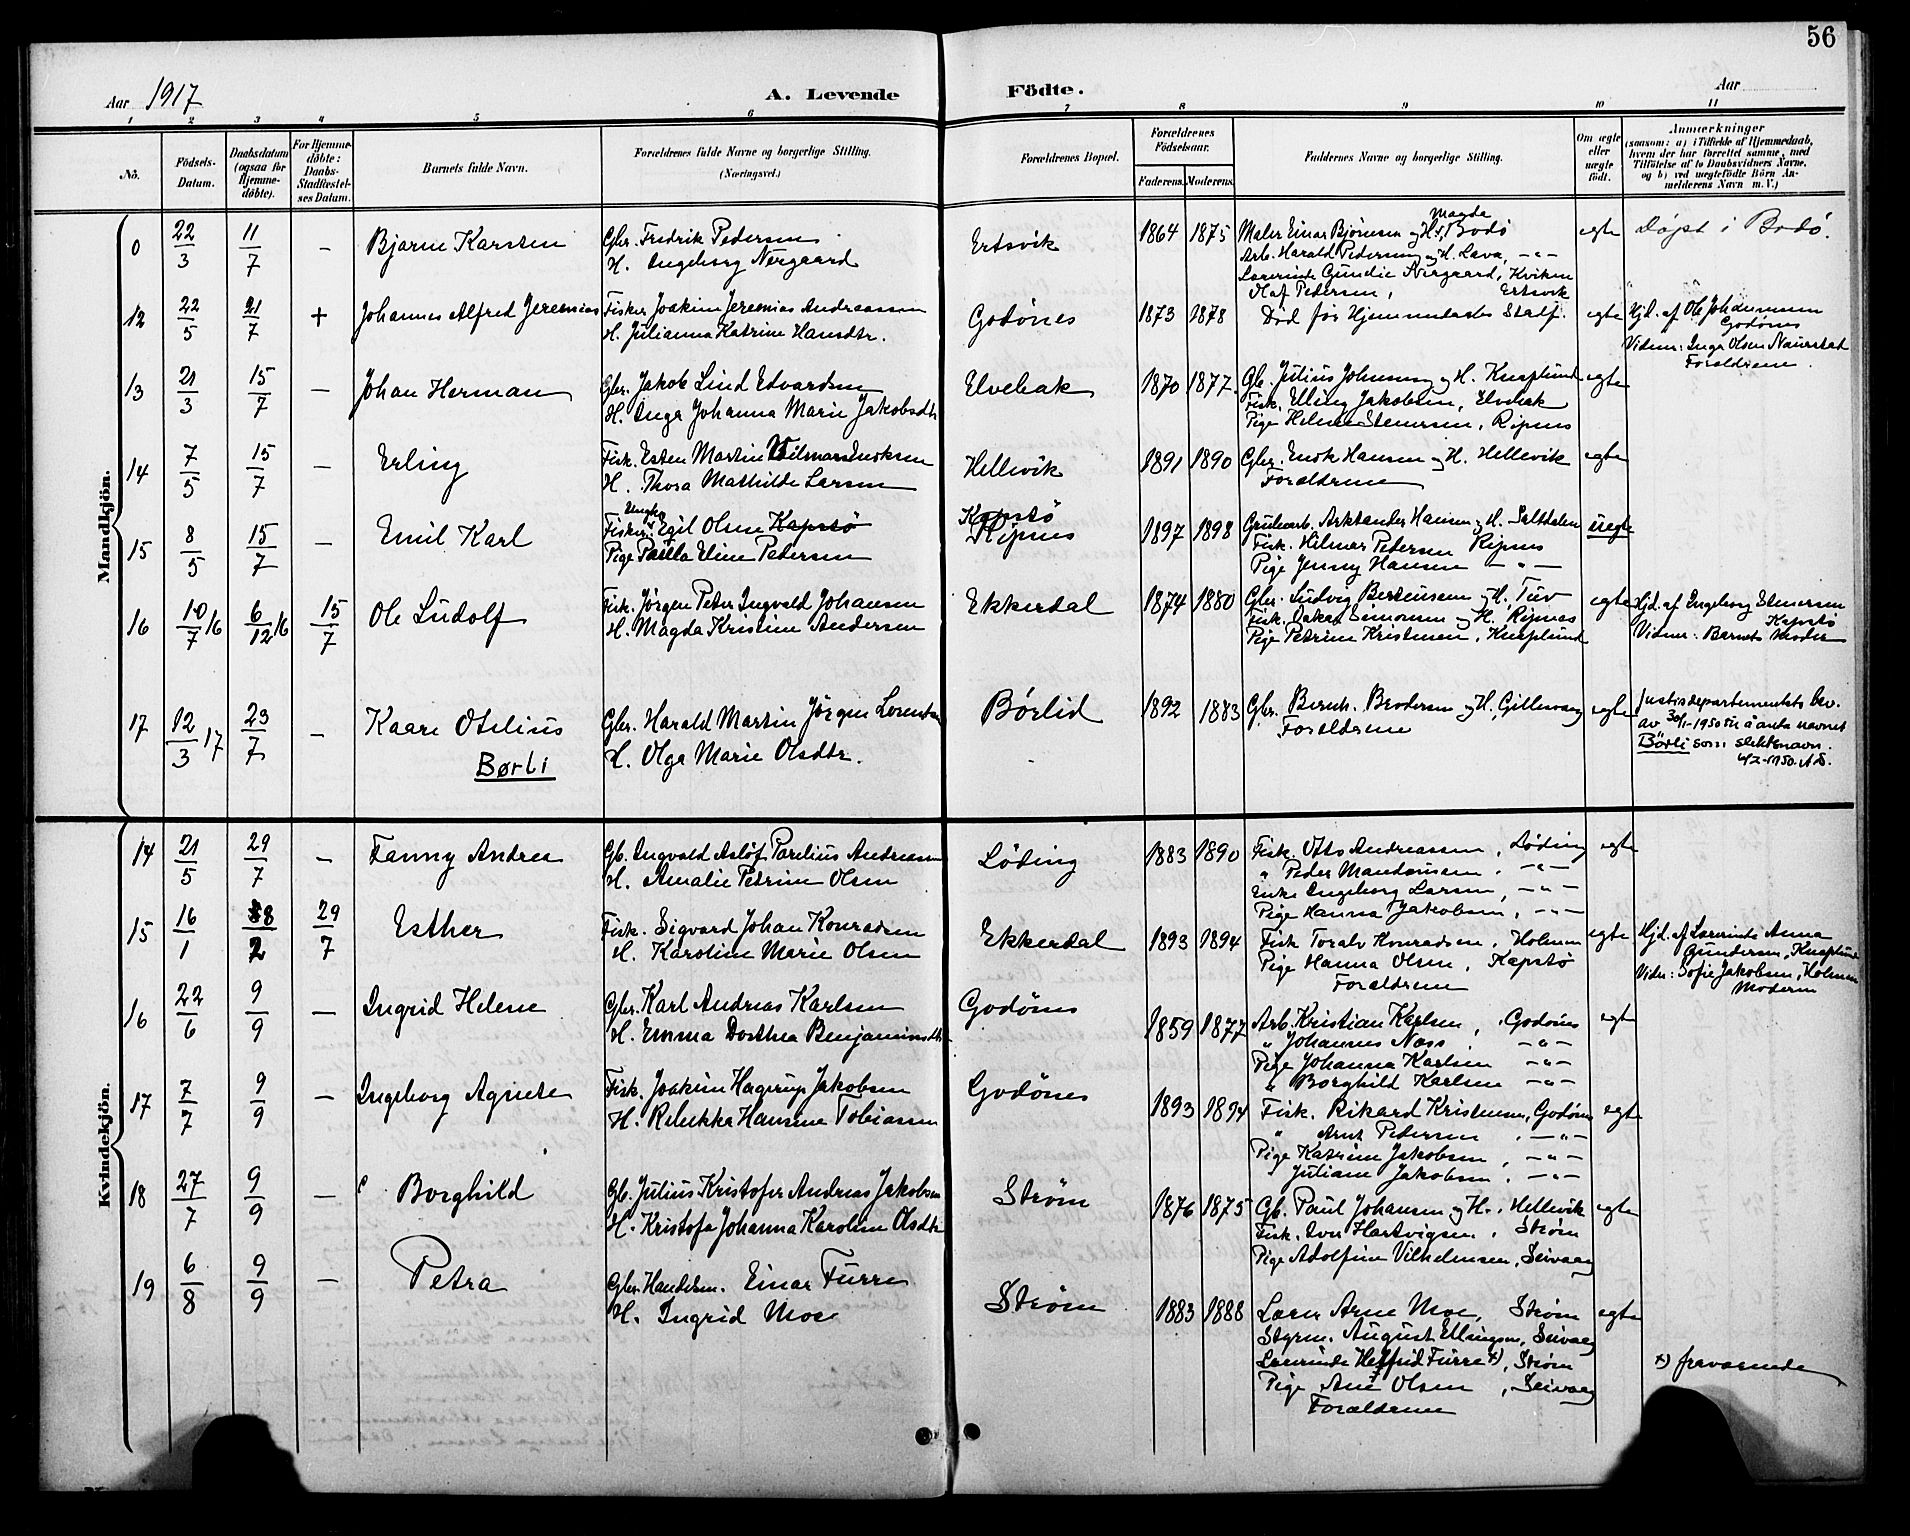 56
Aar 1917
A. Levende Födte.
Aar
1 2 3 4 5 6 7 8 9 10 11
No.
Födsels-
Datum.
Daabsdatum
(ogsaa for
Hjemme-
döbte).
For Hjemme-
döbte:
Daabs-
Stadfæstel-
ses Datum.
Barnets fulde Navn.
Forældrenes fulde Navne og borgerlige Stilling.
(Næringsvei.)
Forældrenes Bopæl.
Forældrenes
Födselsaar.
Faderens. Moderens.
Faddernes Navne og borgerlige Stilling.
Om ægte
eller
uægte
födt.
Anmærkninger
(saasom: a) i Tilfælde af Hjemmedaab,
hvem der har forrettet samme, med
Tilföielse af to Daabsvidners Navne,
og b) ved uegtefödte Börn An-
melderens Navn m. V.)
Mandkjön.
0 22/3 11/7 – Bjarne Karsten
Gbr. Fredrik Pedersen
H. Ingeborg Nergaard
Ertsvik 1864 1875
Magda
Maler Einar Bjørnsen og H., Bodø
Arb. Harald Pedersen og H. Lava, – " –
Lærerinde Gundie Nergaard, Kvikne
Olaf Pedersen, Ertsvik
egte Døpt i Bodø.
12 22/5 21/7 + Johannes Alfred Jeremias
Fisker Joakim Jeremias Andreassen
H. Julianna Katrine Hansdtr.
Godønes 1873 1878
Død før Hjemmedaabs Stadf.
egte
Hjd. af Ole Johannesen
Godønes
Vidner: Inga Olsen Naurstad
Forældrene.
13 21/3 15/7 – Johan Herman
Gbr. Jakob Lind Edvardsen
H. Inga Johanna Marie Jakobsdtr
Elvebak 1870 1877.
Gb. Julius Johnsen og H. Knaplund
Fisk. Elling Jakobsen, Elvebak
Pige Helene Stenersen, Ripnes
egte
14 7/5 15/7 – Erling
Fisk. Esten Martin Vilmar Enoksen
H. Thora Mathilde Larsen
Hellevik 1891 1890
Gbr. Enok Hansen og H. Hellevik
Forældrene
egte
15 8/5 15/7 – Emil Karl
Ungkar
Fisker Egil Olsen Kapstø
Pige Paula Eline Petersen
Kapstø
Ripnes 1897 1898
Grubearb. Arktander Hansen og H. Saltdalen
Fisk. Hilmar Petersen Ripnes
Pige Jenny Hansen – " –
uegte
16 10/7 16 6/12 16 15/7 Ole Ludolf
Fisk. Jørgen Peter Ingvald Johansen
H. Magda Kristine Andersen
Ekkerdal 1874 1880
Gbr. Ludvig Berteusen og H., Tuv
Fisk. Oskar Simonsen og H. Ripnes
Pige Petrine Kristensen, Knaplund
egte
Hjd. af Engeborg Stenersen
Kapstø
Vidner: Barnets Moder
17 12/3 17 23/7 – Kaare Otelius
Børli
Gbr. Harald Martin Jørgen Lorentsen
H. Olga Marie Olsdtr.
Børlid 1892 1883
Gbr. Bernh. Brodersen og H., Gillesvaag
Forældrene
egte
Justisdepartementets bev.
av 30/1-1950 til å anta navnet
Børli som slektsnavn.
4/2-1950. AS.
Kvindekjön.
14 21/5 29/7 – Fanny Andrea
Gb. Ingvald Asløf Parelius Andreassen
H. Amalie Petrine Olsen
Løding 1883 1890
Fisk. Otto Andreassen, Løding
" Peder Mandonsen. – " –
Enke Ingeborg Larsen, – " –
Pige Hanna Jakobsen, – " –
egte
15 16/1 8/2 29/7 Esther
Fisk. Sigvard Johan Konradsen
H. Karoline Marie Olsen
Ekkerdal 1893 1894
Fisk Toralv Konradsen. Holmen
Pige Hanna Olsen, Kapstø
Forældrene
egte
Hjd. af Lærerinde Anna
Gundersen, Knaplund
Vidn: Sofie Jakobsen, Holmen
Moderen
16 22/6 9/9 – Ingrid Helene
Gbr. Karl Andreas Karlsen
H. Emma Dorthea Benjaminsdtr
Godønes 1859 1877
Arb. Kristian Karlsen, Godønes
" Johannes Næss, – " –
Pige Johanna Karlsen – " –
" Borghild Karlsen – " –
egte
17 7/7 9/9 – Ingeborg Agnete
Fisk. Joakim Hagerup Jakobsen
H. Rebekka Hansine Tobiassen
Godønes 1893 1894
Fisk. Rikard Kristensen, Godønes
" Arnt Pedersen, – " –
Pige Katrine Jakobsen, – " –
" Juliane Jakobsen, – " –
egte
18 27/7 9/9 – Borghild
Gb. Julius Kristofer Andreas Jakobsen
H. Kristofa Johanna Karoline Olsdtr
Strøm 1876 1875
Gb. Paul Johansen og H., Hellevik
Fisk. Iver Hartvigsen. Strøm
Pige Adolfine Vilhelmsen, Seivaag
egte
19 6/8 9/9 – Petra
Gbr. Handelsm. Einar Furre
H. Ingrid Moe
Strøm 1883 1888
Lærer Arne Moe, Strøm
Styrm. August Ellingsen, Seivaag
Lærerinde Helfrid Furre x), Strøm
Pige Ane Olsen, Seivaag
Forældrene
egte
x) fraværende